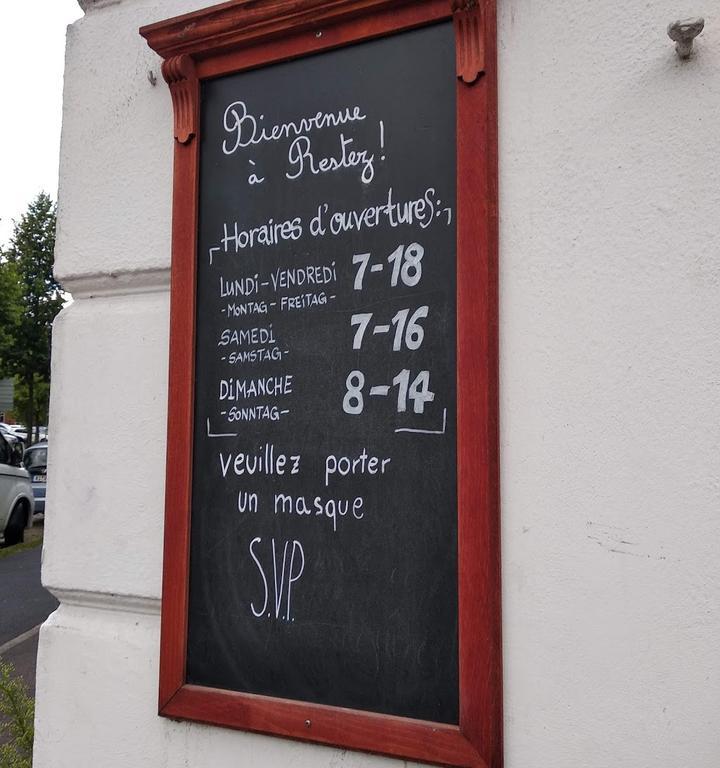 Bienvenue
à Restez!
Horaires d'ouvertures:
LUNDI-VENDREDI 7-18
- MONTAG - FREITAG -
SAMEDI 7-16
- SAMSTAG -
DIMANCHE 8-14
- SONNTAG -
veuillez porter
un masque
S.V.P.